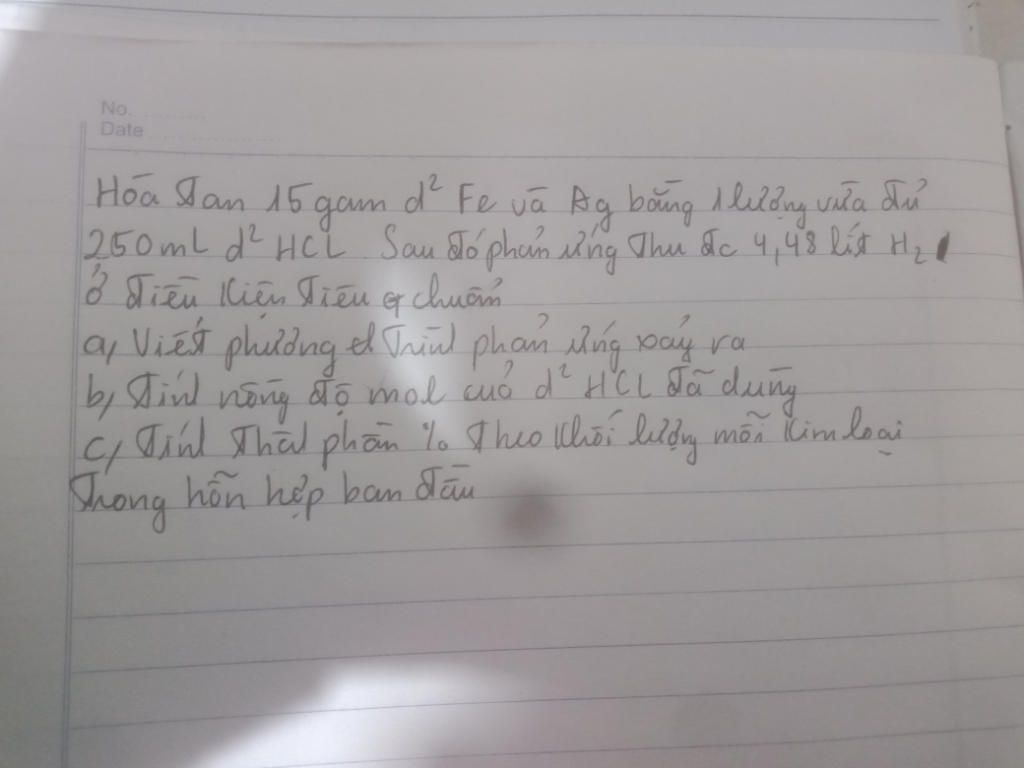 No.
Date
Hóa tan 15 gam d² Fe và Ag bằng 1 lượng vừa đủ
250mL d² HCL. Sau đó phản ứng thu đc 4,48 lít H₂
ở điều kiện tiêu chuẩn
a, Viết phương trình phản ứng xảy ra
b, Tính nồng độ mol của d² HCL đã dùng
c, Tính thành phần % theo khối lượng mỗi kim loại
trong hỗn hợp ban đầu